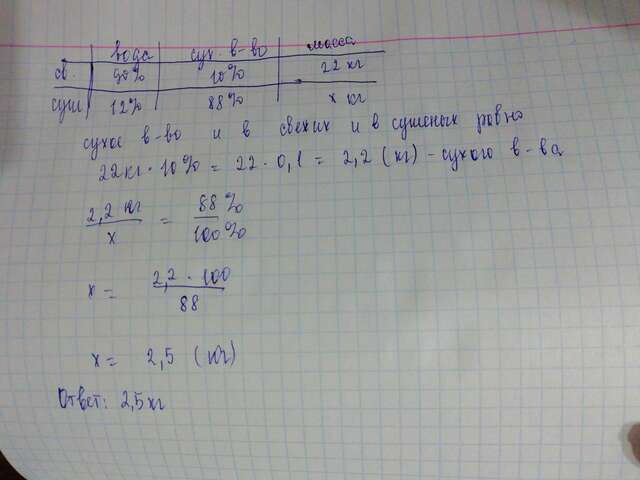 вода сух. в-во масса
св. 90% 10% 22 кг
суш 12% 88% х кг
сухое в-во и в свежих и в сушеных равно
22кг · 10% = 22 · 0,1 = 2,2 (кг) - сухого в-ва
2,2 кг / х = 88% / 100%
х = 2,2 · 100 / 88
х = 2,5 (кг)
Ответ: 2,5кг